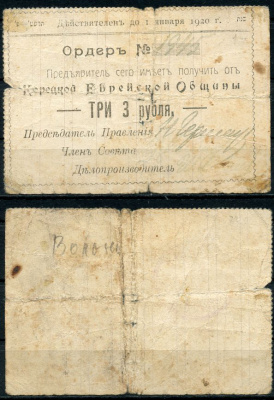 Дѣйствителенъ до 1 января 1920 г.
Ордеръ №
Предъявитель сего имѣетъ получить отъ
Корецкой Еврейской Общины
— ТРИ 3 рубля. —
Предсѣдатель Правленія
Членъ Совѣта
Дѣлопроизводитель